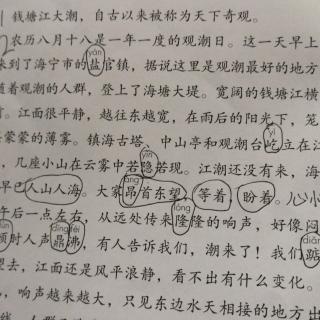 1 钱塘江大潮，自古以来被称为天下奇观。
2 农历八月十八是一年一度的观潮日。这一天早上
yán
来到了海宁市的盐官镇，据说这里是观潮最好的地方
随着观潮的人群，登上了海塘大堤。宽阔的钱塘江横
江面很平静，越往东越宽，在雨后的阳光下，笼
yì
蒙蒙的薄雾。镇海古塔、中山亭和观潮台屹立在江
yǐn
几座小山在云雾中若隐若现。江潮还没有来，海
áng
早已人山人海。大家昂首东望，等着，盼着。心
lóng
午后一点左右，从远处传来隆隆的响声，好像闷
dǐng fèi diǎn
顿时人声鼎沸，有人告诉我们，潮来了！我们踮
望去，江面还是风平浪静，看不出有什么变化。
响声越来越大，只见东边水天相接的地方出